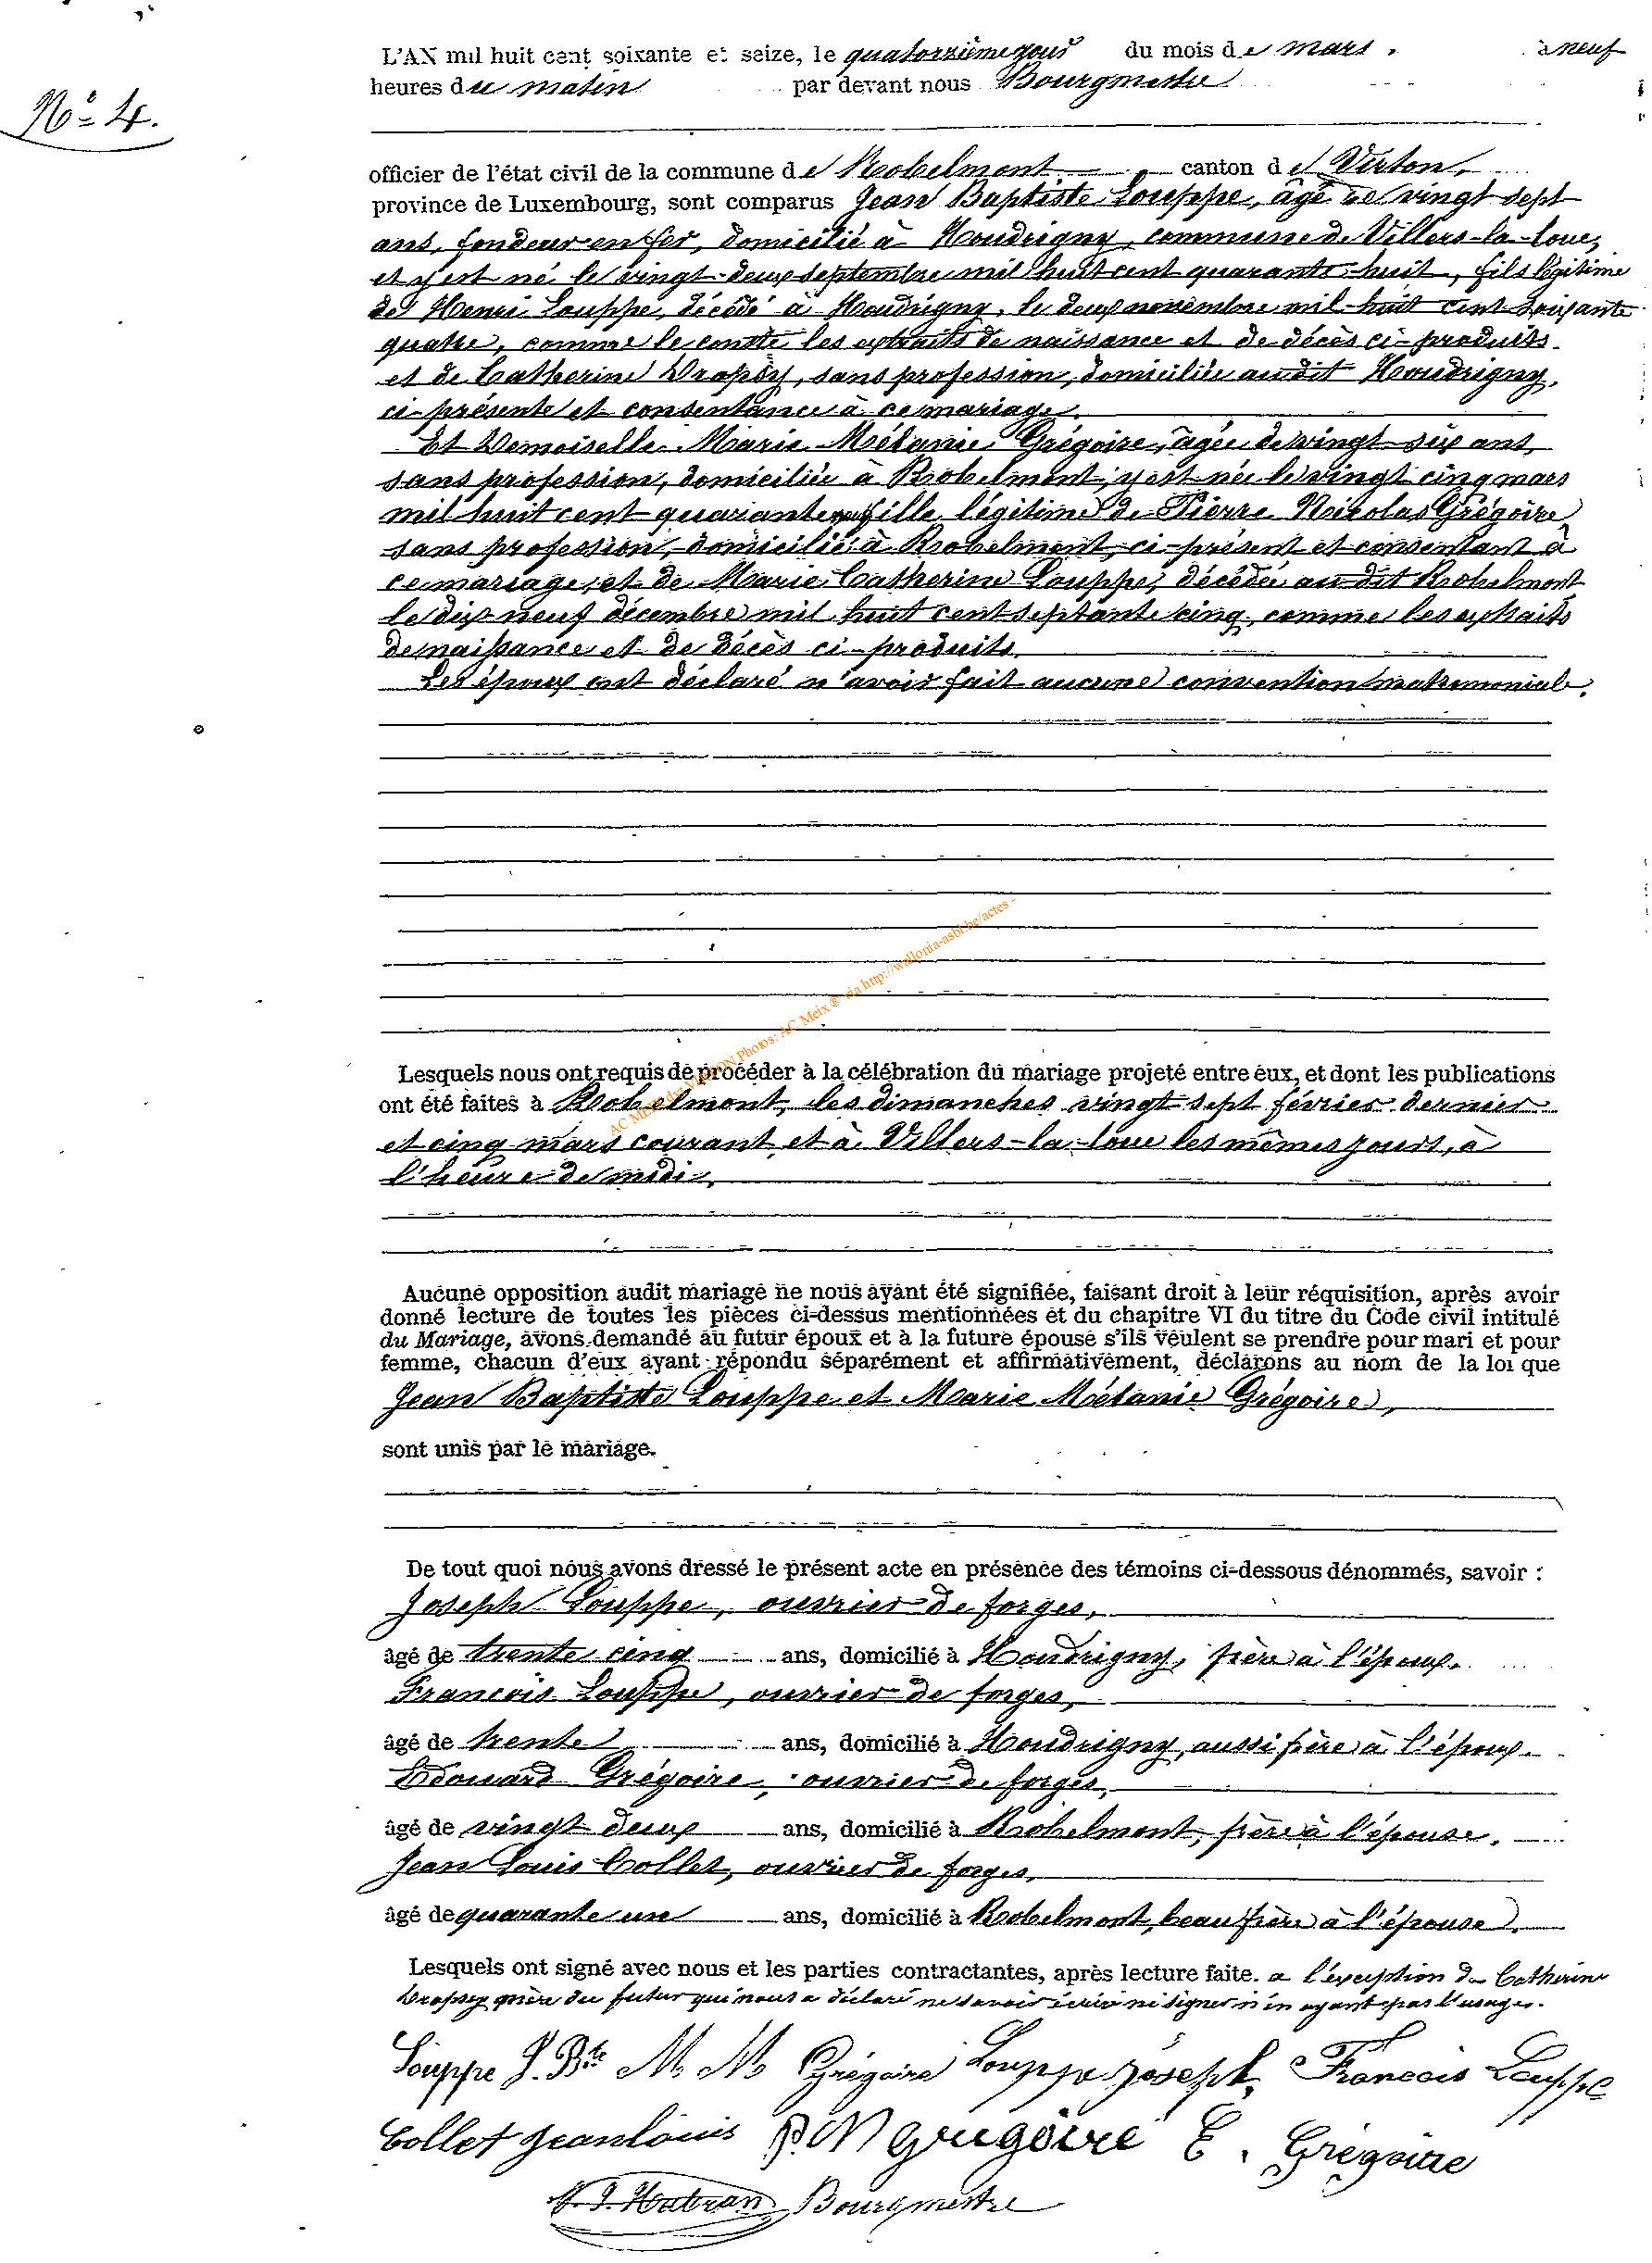 L'AN mil huit cent soixante et seize, le quatorzième jour du mois de mars. à neuf
heures du matin par devant nous Bourgmestre
N° 4.
officier de l'état civil de la commune de Robelmont canton de Virton,
province de Luxembourg, sont comparus Jean Baptiste Louppe, âgé de vingt sept
ans, fondeur en fer, domicilié à Houdrigny, commune de Villers-la-loue,
et y est né le vingt-deux septembre mil huit cent quarante-huit, fils légitime
de Henri Louppe, décédé à Houdrigny, le deux novembre mil-huit cent soixante
quatre, comme le conste les extraits de naissance et de décès ci-produits
et de Catherine Dropsy, sans profession, domiciliée audit Houdrigny,
ci-présente et consentance à ce mariage.
Et Demoiselle Marie Mélanie Grégoire, âgée de vingt-six ans,
sans profession, domiciliée à Robelmont, y est née le vingt cinq mars
mil huit cent quarante neuf fille légitime de Pierre Nicolas Grégoire
sans profession, domicilié à Robelmont, ci-présent et consentant à
ce mariage, et de Marie Catherine Louppe, décédée au dit Robelmont
le dix-neuf décembre mil huit cent septante cinq, comme les extraits
de naissance et de décès ci-produits.
Les époux ont déclaré n'avoir fait aucune convention matrimoniale.
AC MEIX dvt VIRTON Photos: AC Meix ® via http://wallonia-asbl.be/actes -
Lesquels nous ont requis de procéder à la célébration du mariage projeté entre eux, et dont les publications
ont été faites à Robelmont, les dimanches vingt sept février dernier
et cinq mars courant et à Villers-la-loue les mêmes jours, à
l'heure de midi.
Aucune opposition audit mariage ne nous ayant été signifiée, faisant droit à leur réquisition, après avoir
donné lecture de toutes les pièces ci-dessus mentionnées et du chapitre VI du titre du Code civil intitulé
du Mariage, avons demandé au futur époux et à la future épouse s'ils veulent se prendre pour mari et pour
femme, chacun d'eux ayant répondu séparément et affirmativement, déclarons au nom de la loi que
Jean Baptiste Louppe et Marie Mélanie Grégoire,
sont unis par le mariage.
De tout quoi nous avons dressé le présent acte en présence des témoins ci-dessous dénommés, savoir :
Joseph Louppe, ouvrier de forges,
âgé de trente cinq ans, domicilié à Houdrigny, frère à l'époux.
François Louppe, ouvrier de forges,
âgé de trente ans, domicilié à Houdrigny, aussi frère à l'époux.
Edouard Grégoire, ouvrier de forges,
âgé de vingt deux ans, domicilié à Robelmont, frère à l'épouse.
Jean Louis Collet, ouvrier de forges,
âgé de quarante un ans, domicilié à Robelmont, beau frère à l'épouse.
Lesquels ont signé avec nous et les parties contractantes, après lecture faite. a l'exception de Catherine
Dropsy mère du futur qui nous a déclaré ne savoir écrire ni signer n'en ayant pas l'usage.
Louppe J. Bte M. M. Grégoire Louppe Joseph, Francois Louppe
Collet jeanlouis P. N Grégoire E. Grégoire
Bourgmestre